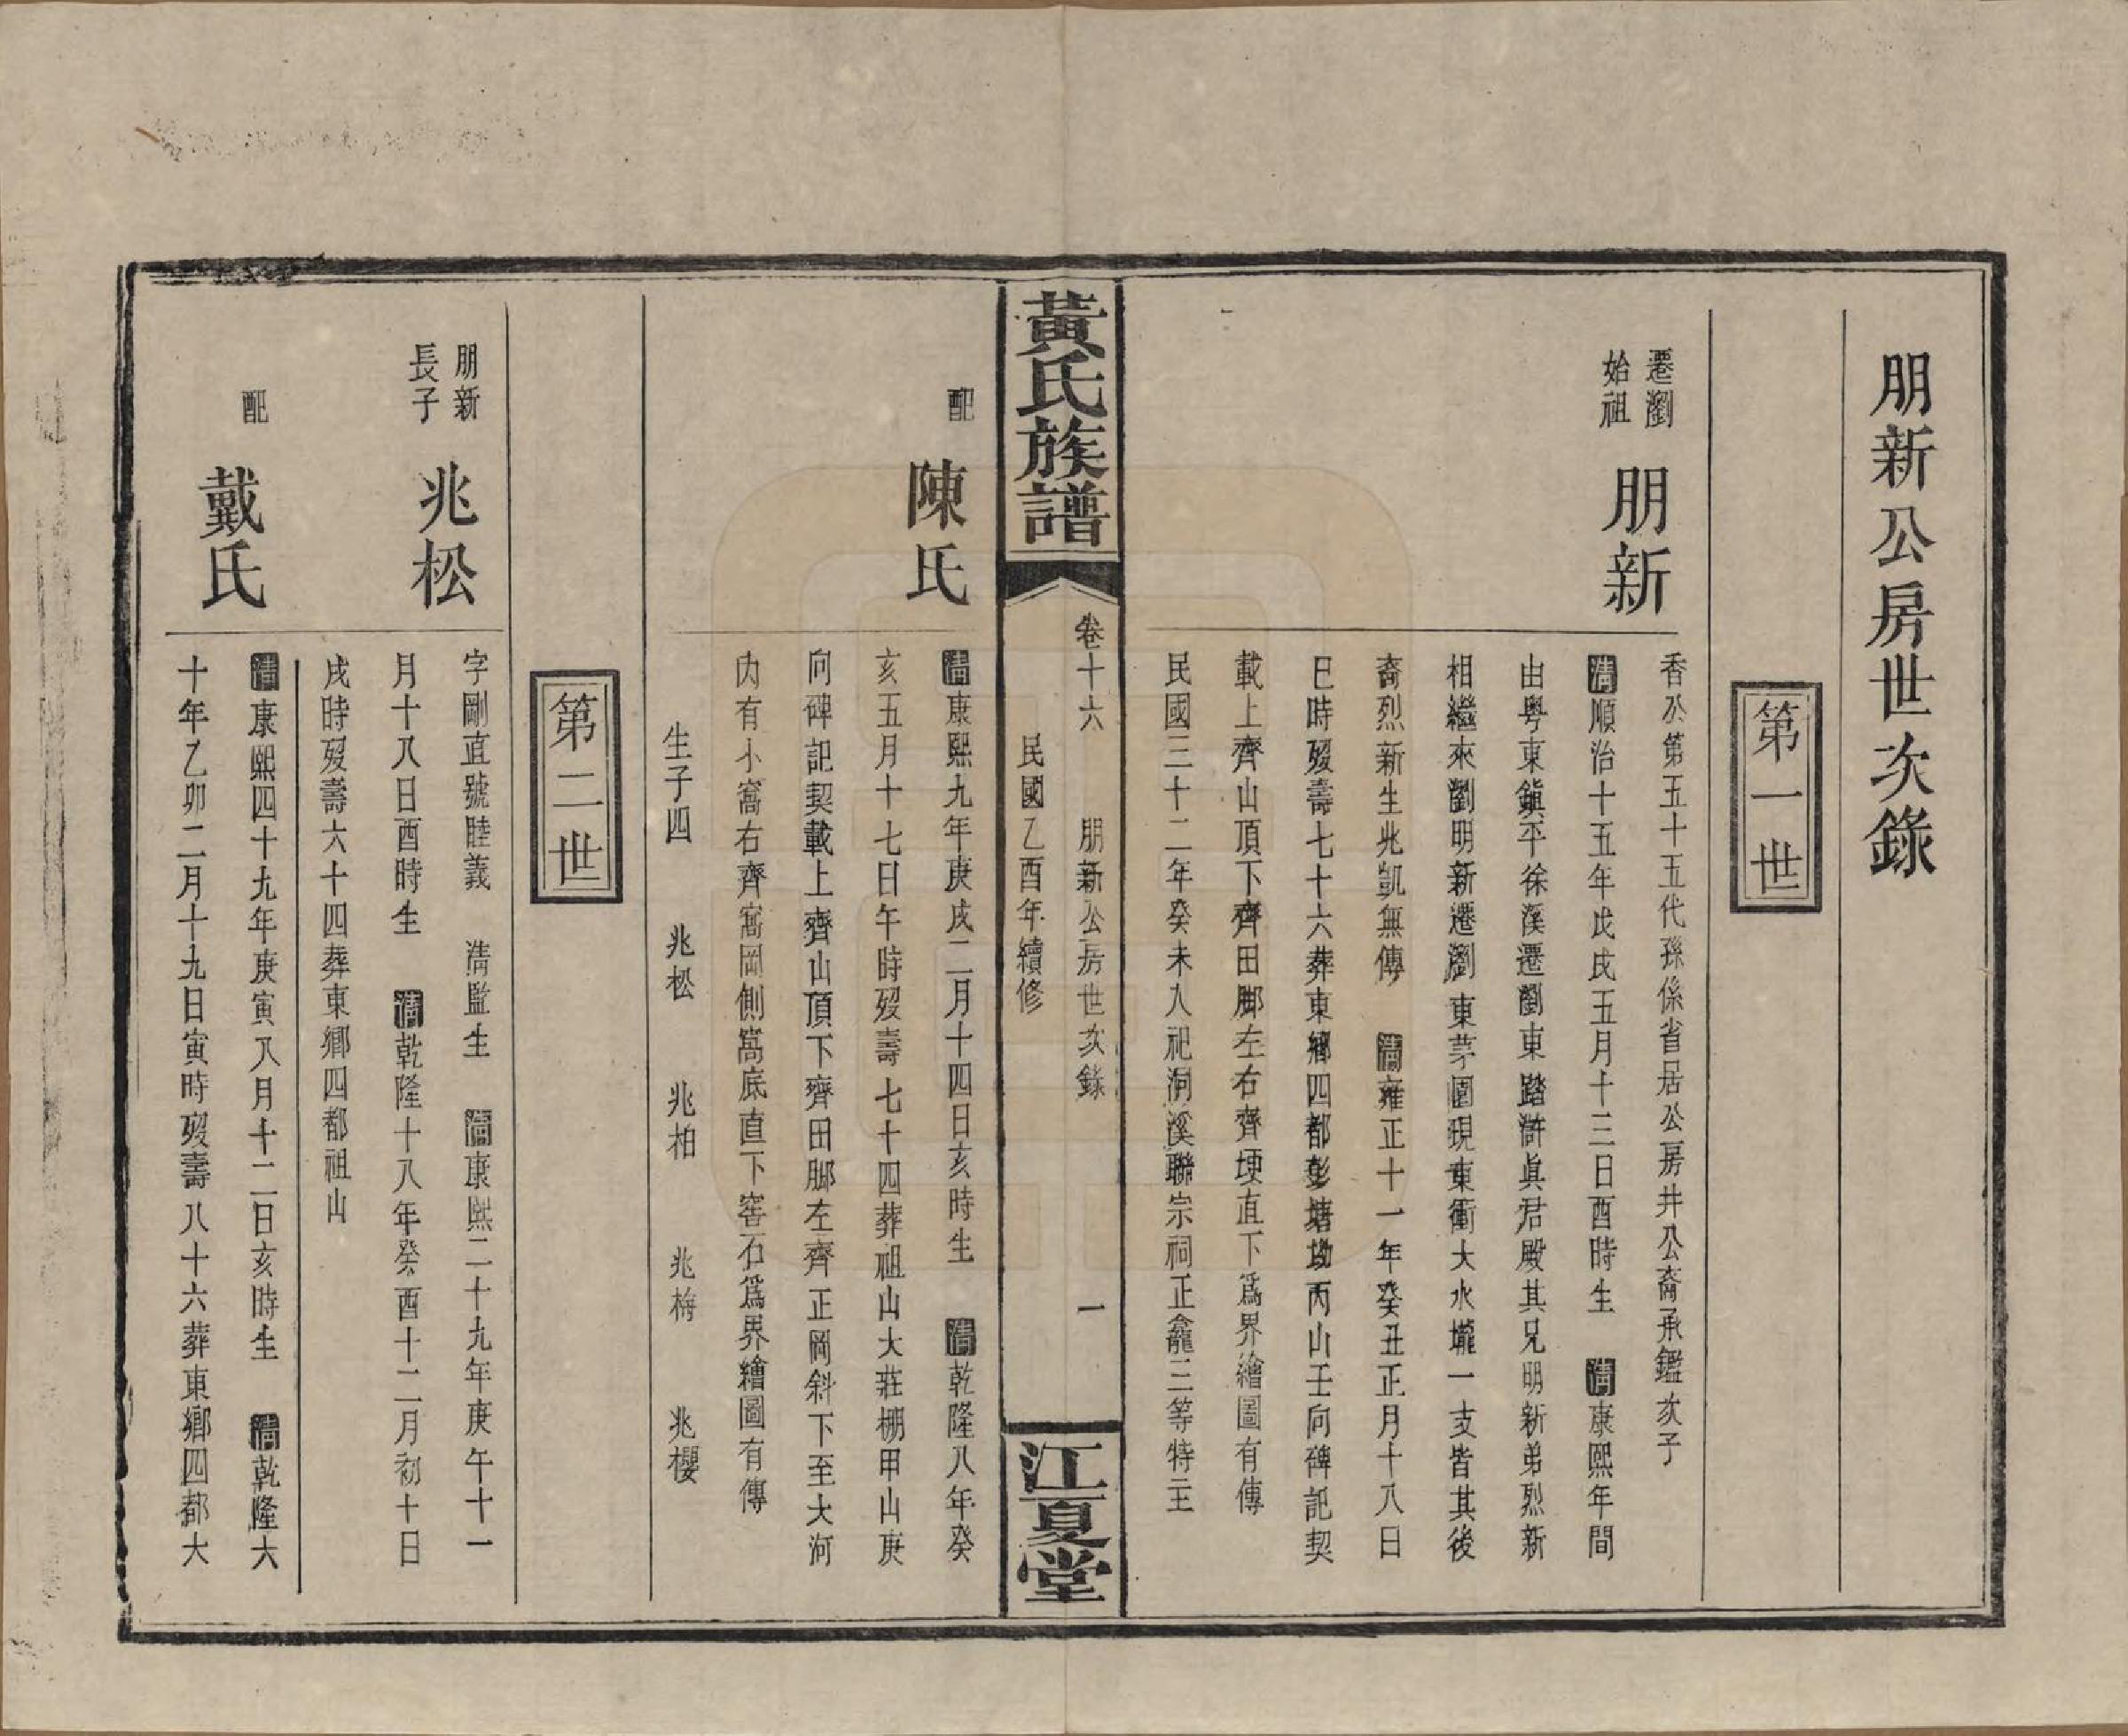 朋新公房世次錄
第一世
遷瀏
始祖
朋新
香公第五十五代孫係省居公房井公裔承鑑次子
清順治十五年戊戌五月十三日酉時生 清康熙年間
由粤東鎭平徐溪遷瀏東踏滸眞君殿其兄明新弟烈新
相繼來瀏明新遷瀏東茅園現東衝大水壠一支皆其後
裔烈新生兆凱無傳 清雍正十一年癸丑正月十八日
巳時歿壽七十六葬東鄉四都彭塘坳丙山壬向碑記契
載上齊山頂下齊田脚左右齊埂直下爲界繪圖有傳
民國三十二年癸未入祀洞溪聯宗祠正龕三等特主
黃氏族譜
卷十六 朋新公房世次錄 一
民國乙酉年續修
江夏堂
配
陳氏
清康熙九年庚戌二月十四日亥時生 清乾隆八年癸
亥五月十七日午時歿壽七十四葬祖山大莊棚甲山庚
向碑記契載上齊山頂下齊田脚左齊正岡斜下至大河
內有小窩右齊窩岡側窩底直下窖石爲界繪圖有傳
生子四 兆松 兆柏 兆梅 兆櫻
第二世
朋新
長子
兆松
字剛直號睦義 清監生 清康熙二十九年庚午十一
月十八日酉時生 清乾隆十八年癸酉十二月初十日
戌時歿壽六十四葬東鄉四都祖山
配
戴氏
清康熙四十九年庚寅八月十二日亥時生 清乾隆六
十年乙卯二月十九日寅時歿壽八十六葬東鄉四都大